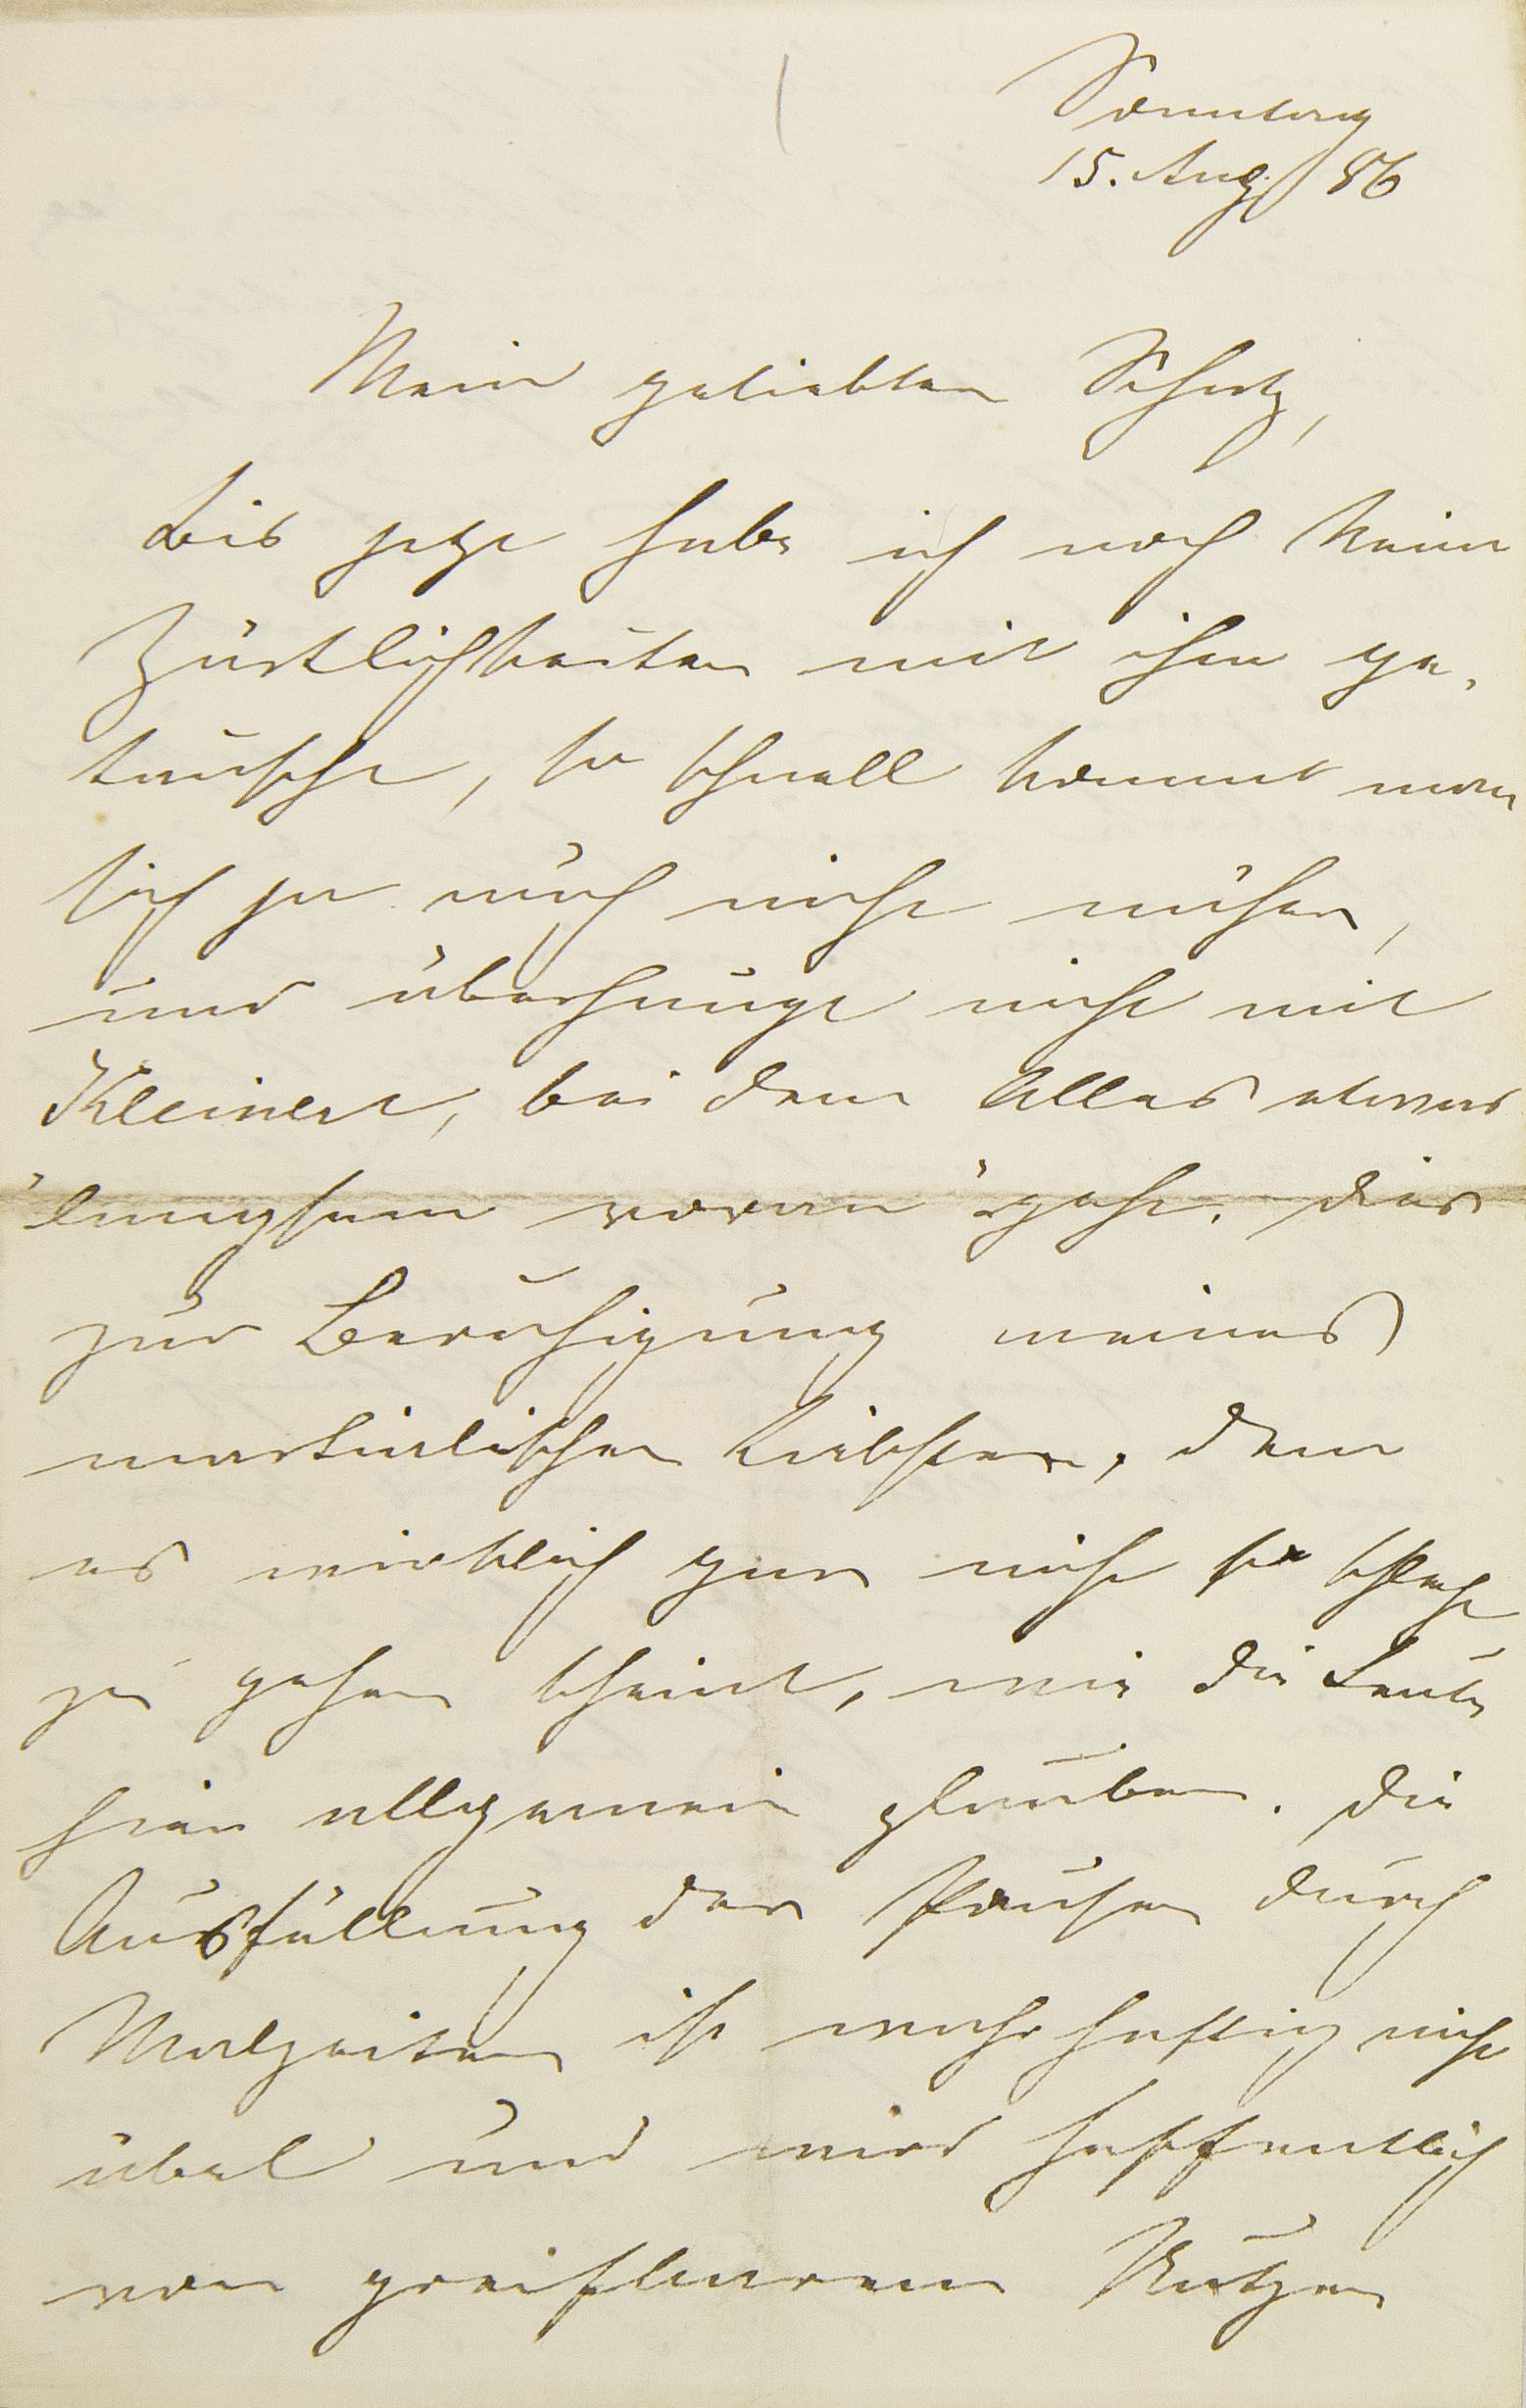 Sonntag
15. Aug 86
Mein geliebter Schatz,
Bis jetzt habe ich noch keine
Zärtlichkeiten mit ihm ge-
tauscht, so schnell kommt man
sich ja auch nicht näher,
und überhaupt nicht mit
Kleinert, bei dem Alles etwas
langsam voran geht. Dies
zur Beruhigung meines
martialischen Liebsten, dem
es wirklich gar nicht so schlecht
zu gehen scheint, wie die Leute
hier allgemein glauben. Die
Ausfüllung der Pausen durch
Malzeiten ist wahrhaftig nicht
übel und wird hoffentlich
von greifbarem Nutzen